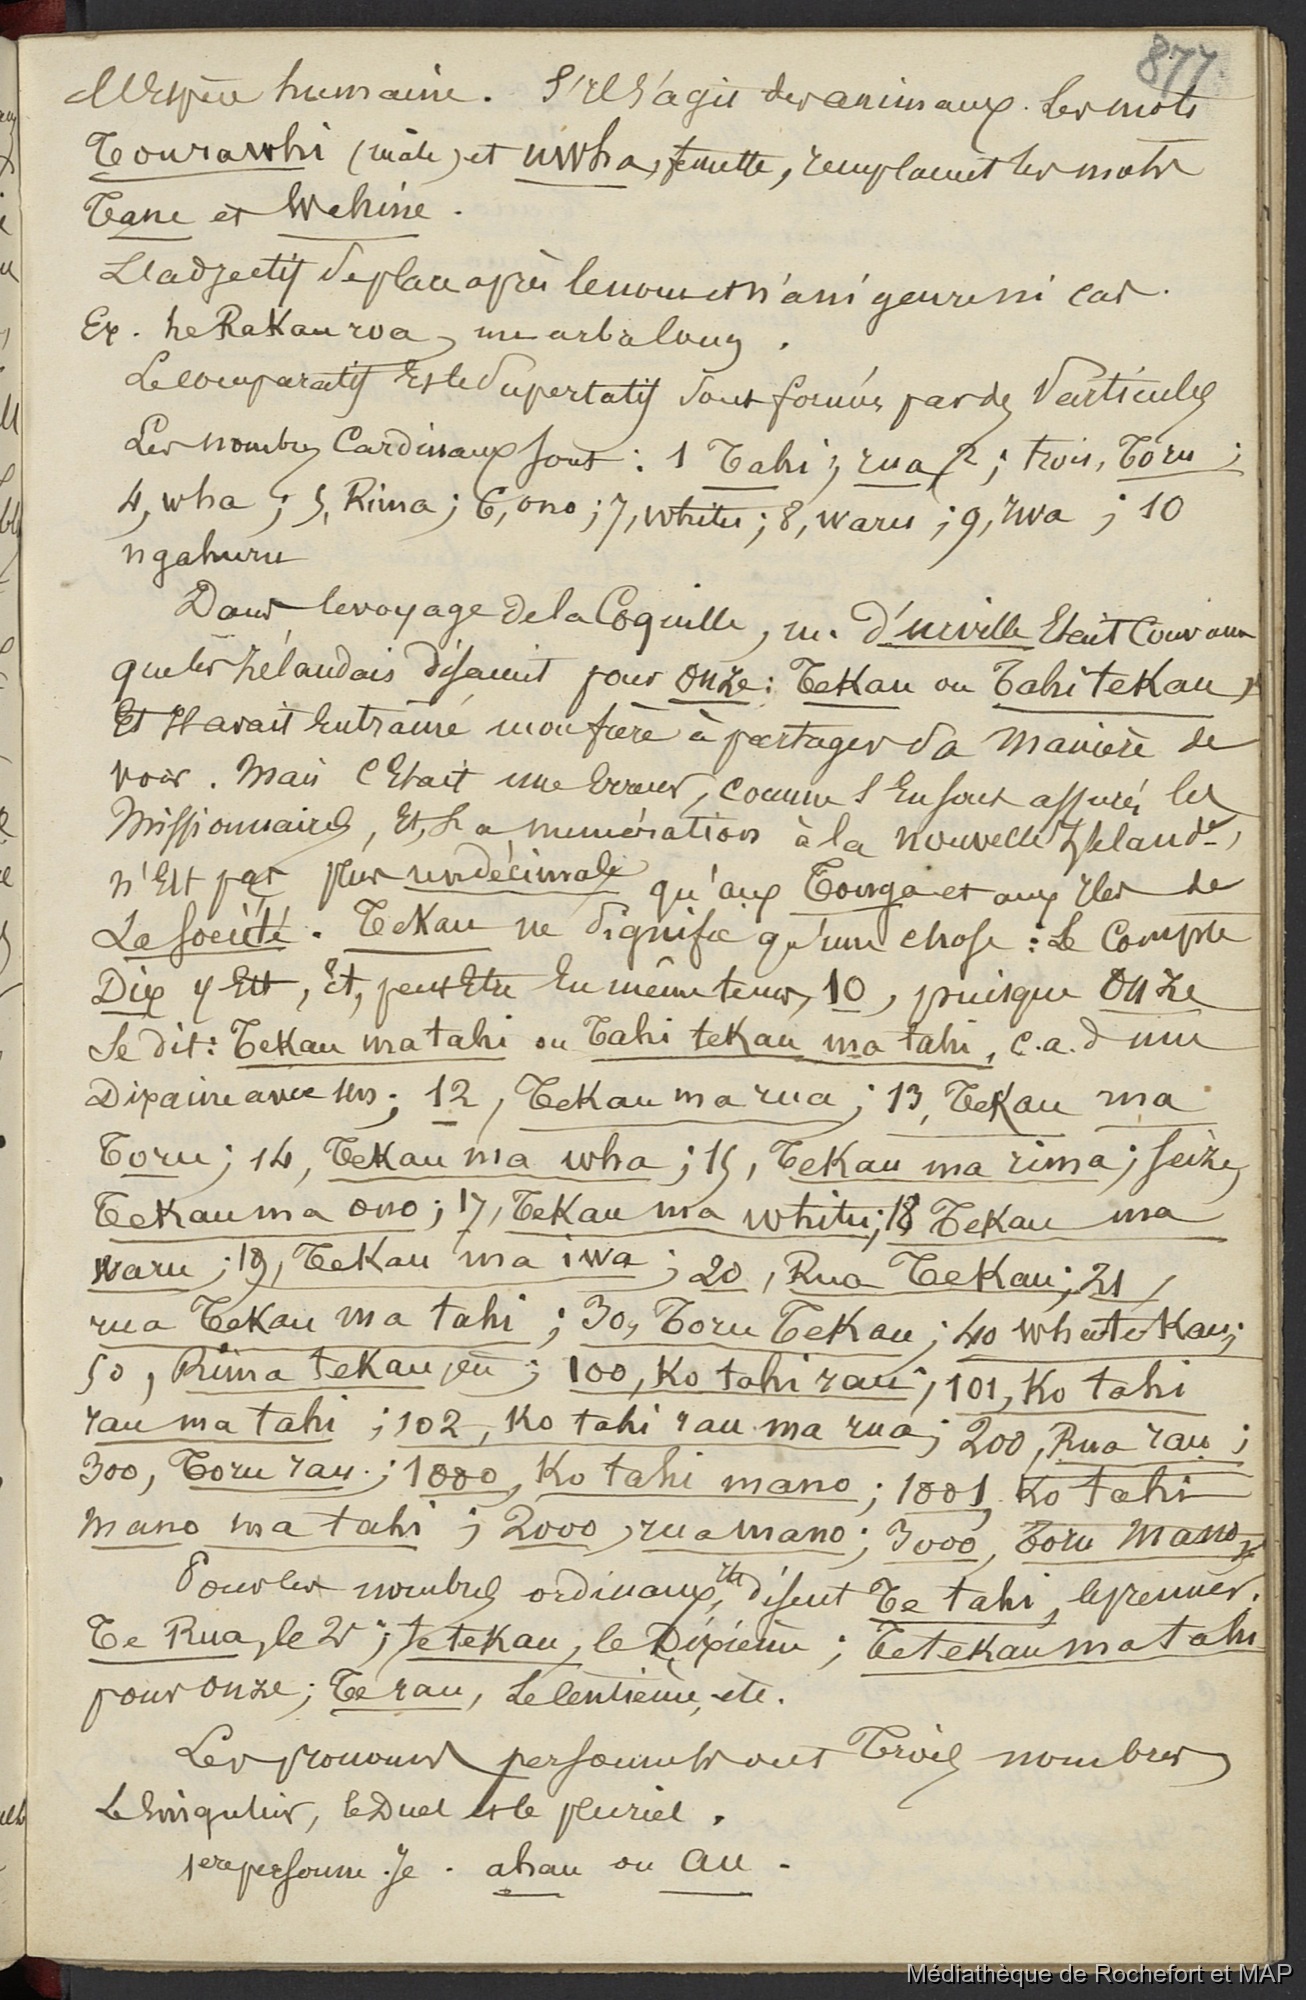 877.
l'Espèce humaine. S'il s'agit des animaux. Les mots
Tourawhi (mâle) et uwha, femelle, remplacent les mots
Tane et Wehine.
L'adjectif se place après le nom et n'a ni genre ni cas.
Ex. he Rakau roa, un arbre long.
Le comparatif et le superlatif sont formés par des particules
Les nombres Cardinaux sont: 1 Tahi; rua, 2; trois, Toru;
4, wha; 5, Rima; 6, ono; 7, whitu; 8, waru; 9, iwa; 10
ngahuru
Dans le voyage de la Coquille, m. d'urville était Convaincu
que les zélandais disaient pour onze: Tekau ou Tahi tekau,
Et Il avait Entraîné mon frère à partager sa manière de
voir. Mais C'était une Erreur, comme s'en sont assurés les
Missionnaires, Et, La numération à la nouvelle Zélande,
n'Est pas plus undécimale qu'aux Tonga et aux Iles de
La Société. Tekau ne signifie qu'une chose: Le Compte
Dix y Est, Et, peut Etre En même tems, 10, puisque Onze
se dit: Tekau ma tahi ou Tahi tekau ma tahi, c.a.d une
Dixaine avec un; 12, Tekau ma rua; 13, Tekau ma
Toru; 14, Tekau ma wha; 15, Tekau ma rima; seize,
Tekau ma ono; 17, Tekau ma whitu; 18 Tekau ma
waru; 19, Tekau ma iwa; 20, Rua Tekau; 21,
rua Tekau ma tahi; 30, Toru Tekau; 40 wha te Kau;
50, Rima tekau; 100, Ko tahi rau; 101, Ko tahi
rau ma tahi; 102, Ko tahi rau ma rua; 200, Rua rau;
300, Toru rau; 1000, Ko tahi mano; 1001, Ko tahi
mano ma tahi; 2000, rua mano; 3000, Toru Mano,
Pour les nombres ordinaux, ils disent Te tahi, le premier;
Te Rua, le 2d; te tekau, le Dixième; Te tekau ma tahi
pour onze; Te rau, Le Centième, etc.
Les pronoms personnels ont Trois nombres
Le Singulier, le Duel et le pluriel.
1ere personne. Je. ahau ou au.
Médiathèque de Rochefort et MAP